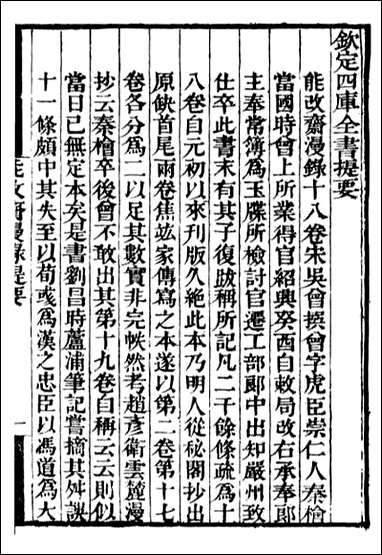 欽定四庫全書提要
能改齋漫錄十八卷宋吳曾撰曾字虎臣崇仁人秦檜
當國時曾上所業得官紹興癸酉自敕局改右承奉郎
主奉常簿爲玉牒所檢討官遷工部郎中出知嚴州致
仕卒此書末有其子復跋稱所記凡二千餘條疏爲十
八卷自元初以來刊版久絶此本乃明人從秘閣抄出
原缺首尾兩卷焦竑家傳寫之本遂以第二卷第十七
卷各分爲二以足其數實非完帙然考趙彥衛雲麓漫
抄云秦檜卒後曾不敢出其第十九卷自稱云云則似
當日已無定本矣是書劉昌時蘆浦筆記嘗摘其舛誤
十一條頗中其失至以荀彧爲漢之忠臣以馮道爲大
能改齋漫錄提要
一